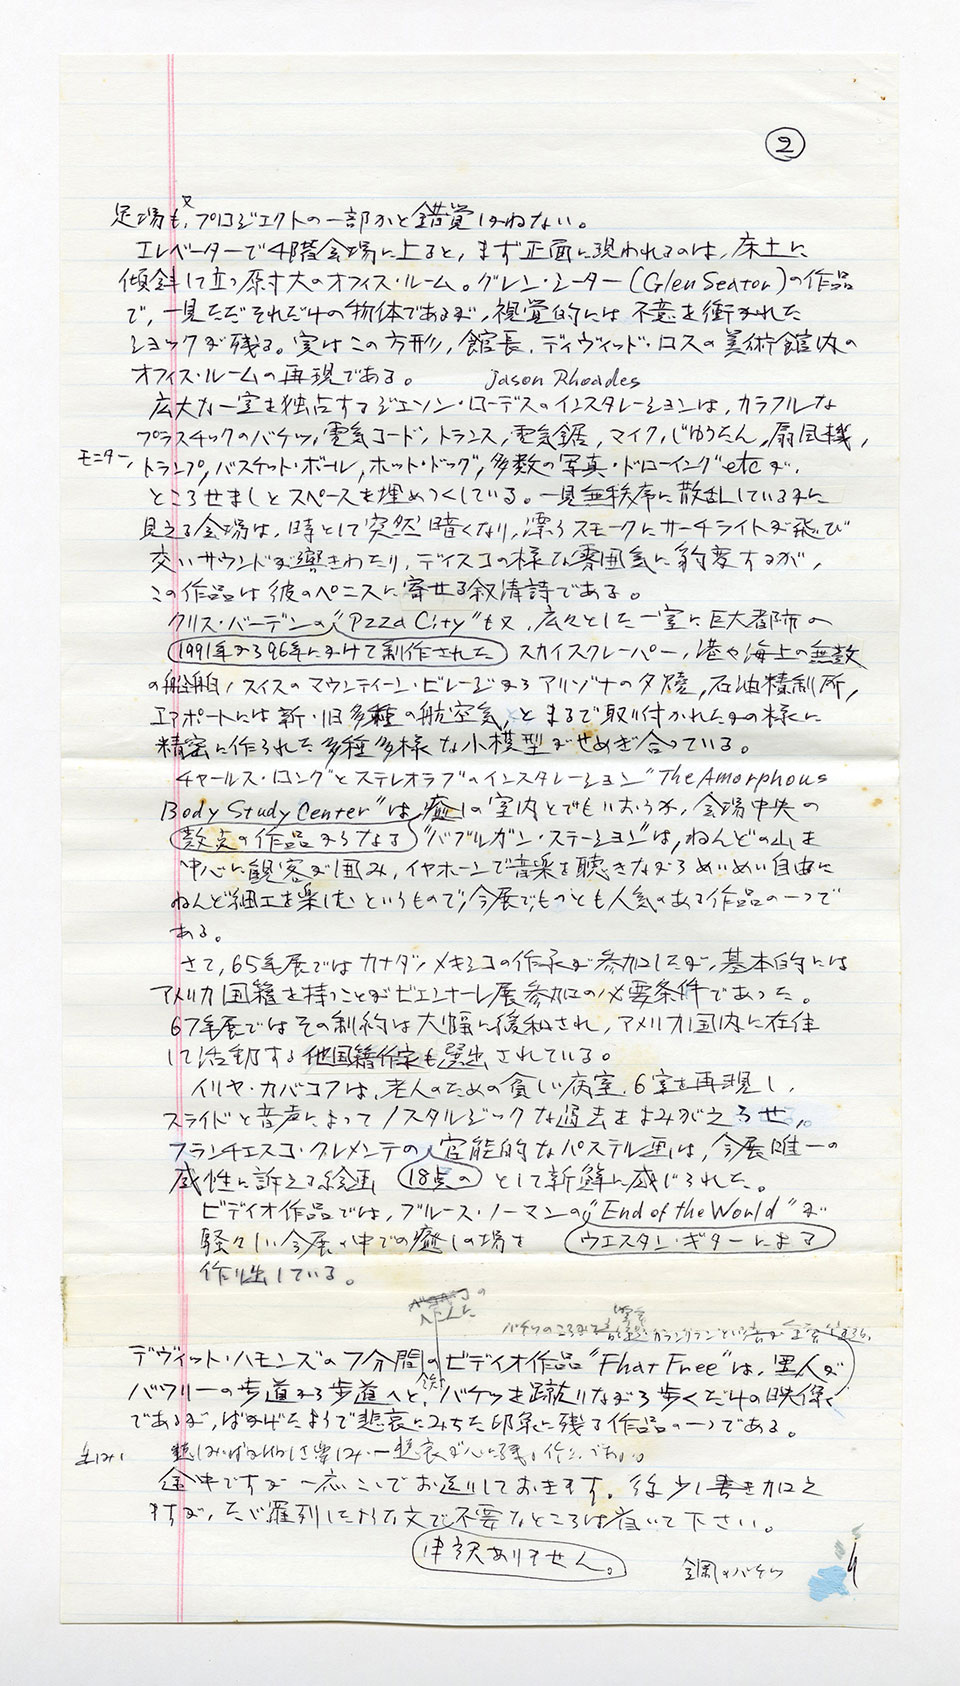 ②
足場も又、プロジェクトの一部かと錯覚しかねない。
エレベーターで4階会場に上ると、まず正面に現われるのは、床上に
傾斜して立つ原寸大のオフィス・ルーム。グレン・シーター(Glen Seator)の作品
で、一見ただそれだけの物体であるが、視覚的には不意を衝かれた
ショックが残る。実はこの方形、館長、デイヴィッド・ロスの美術館内の
オフィス・ルームの再現である。 Jason Rhoades
広大な一室を独占するジェソン・ローデスのインスタレーションは、カラフルな
プラスチックのバケツ、電気コード、トランス、電気鋸、マイク、じゅうたん、扇風機、
モニター、トランプ、バスケット・ボール、ホット・ドッグ、多数の写真・ドローイングetcが、
ところせましとスペースを埋めつくしている。一見無秩序に散乱しているかに
見える会場は、時として突然暗くなり、漂うスモークにサーチライトが飛び
交いサウンドが響きわたり、ディスコの様な雰囲気に豹変するが、
この作品は彼のペニスに寄せる叙情詩である。
クリス・バーデンの"Pzza City"も又、広々とした一室に巨大都市の
1991年から96年にかけて制作された スカイスクレーパー、港や海上の無数
の船舶、スイスのマウンテイーン・ビレージからアリゾナの夕焼、石油精製所、
エアポートには新・旧多種の航空気、とまるで取り付かれたかの様に
精密に作られた多種多様な小模型がせめぎ合っている。
チャールス・ロングとステレオラブのインスタレーション"The Amorphous
Body Study Center"は、癒しの室内とでもいおうか、会場中央の
数点の作品からなる "バブルガン・ステーション"は、ねんどの山を
中心に観客が囲み、イヤホーンで音楽を聴きながらめいめい自由に
ねんど細工を楽しむというもので、今展でもっとも人気のある作品の一つで
ある。
さて、65年展ではカナダ、メキシコの作家が参加したが、基本的には
アメリカ国籍を持つことがビエンナーレ展参加の必要条件であった。
67年展ではその制約は大幅に緩和され、アメリカ国内に在住
して活動する他国籍作家も選出されている。
イリヤ・カバコフは、老人のための貧しい病室、6室を再現し、
スライドと音声によってノスタルジックな過去をよみがえらせ、
フランチェスコ・クレメンテの官能的なパステル画は、今展唯一の
感性に訴える絵画 18点の として新鮮に感じられた。
ビデイオ作品では、ブルース・ノーマンの"End of the World"が
騒々しい今展の中での癒しの場を ウエスタン・ギターによる
作り出している。
バケツのころがる カラングランという音が
デヴィット・ハモンズの7分間のビデイオ作品"Fhat Free"は、黒人が
バワリーの歩道から歩道へと、バケツを蹴りながら歩くだけの映像
であるが、ばかげたようで悲哀にみちた印象に残る作品の一つである。
途中ですが一応ここでお送りしておきます。後少し書き加え
ますが、ただ羅列したような文で不要なところは省いて下さい。
申訳ありません。
鋼のバケツ